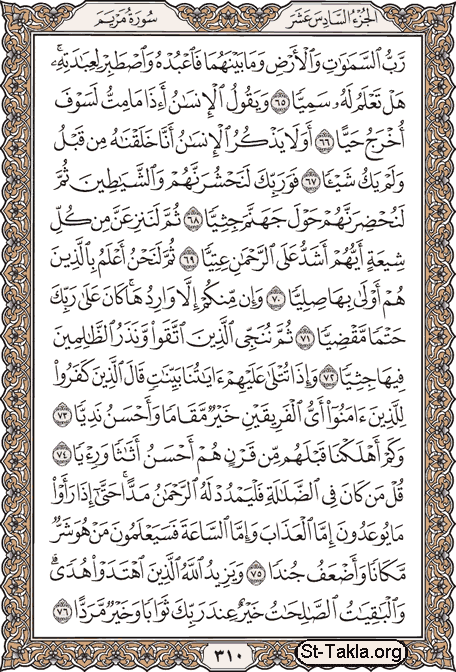 سُورَةُ مَرْيَم
الجُزْءُ السَّادِسَ عَشَرَ
رَّبُّ ٱلسَّمَٰوَٰتِ وَٱلْأَرْضِ وَمَا بَيْنَهُمَا فَٱعْبُدْهُ وَٱصْطَبِرْ لِعِبَٰدَتِهِۦۚ
هَلْ تَعْلَمُ لَهُۥ سَمِيًّا ٦٥ وَيَقُولُ ٱلْإِنسَٰنُ أَءِذَا مَا مِتُّ لَسَوْفَ
أُخْرَجُ حَيًّا ٦٦ أَوَلَا يَذْكُرُ ٱلْإِنسَٰنُ أَنَّا خَلَقْنَٰهُ مِن قَبْلُ
وَلَمْ يَكُ شَيْـًٔا ٦٧ فَوَرَبِّكَ لَنَحْشُرَنَّهُمْ وَٱلشَّيَٰطِينَ ثُمَّ
لَنُحْضِرَنَّهُمْ حَوْلَ جَهَنَّمَ جِثِيًّا ٦٨ ثُمَّ لَنَنزِعَنَّ مِن كُلِّ
شِيعَةٍ أَيُّهُمْ أَشَدُّ عَلَى ٱلرَّحْمَٰنِ عِتِيًّا ٦٩ ثُمَّ لَنَحْنُ أَعْلَمُ بِٱلَّذِينَ
هُمْ أَوْلَىٰ بِهَا صِلِيًّا ٧٠ وَإِن مِّنكُمْ إِلَّا وَارِدُهَاۚ كَانَ عَلَىٰ رَبِّكَ
حَتْمًا مَّقْضِيًّا ٧١ ثُمَّ نُنَجِّى ٱلَّذِينَ ٱتَّقَوا۟ وَّنَذَرُ ٱلظَّٰلِمِينَ
فِيهَا جِثِيًّا ٧٢ وَإِذَا تُتْلَىٰ عَلَيْهِمْ ءَايَٰتُنَا بَيِّنَٰتٍ قَالَ ٱلَّذِينَ كَفَرُوا۟
لِلَّذِينَ ءَامَنُوٓا۟ أَىُّ ٱلْفَرِيقَيْنِ خَيْرٌ مَّقَامًا وَأَحْسَنُ نَدِيًّا ٧٣
وَكَمْ أَهْلَكْنَا قَبْلَهُم مِّن قَرْنٍ هُمْ أَحْسَنُ أَثَٰثًا وَرِءْيًا ٧٤
قُلْ مَن كَانَ فِى ٱلضَّلَٰلَةِ فَلْيَمْدُدْ لَهُ ٱلرَّحْمَٰنُ مَدًّاۚ حَتَّىٰٓ إِذَا رَأَوْا۟
مَا يُوعَدُونَ إِمَّا ٱلْعَذَابَ وَإِمَّا ٱلسَّاعَةَ فَسَيَعْلَمُونَ مَنْ هُوَ شَرٌّ
مَّكَانًا وَأَضْعَفُ جُندًا ٧٥ وَيَزِيدُ ٱللَّهُ ٱلَّذِينَ ٱهْتَدَوْا۟ هُدًىۗ
وَٱلْبَٰقِيَٰتُ ٱلصَّٰلِحَٰتُ خَيْرٌ عِندَ رَبِّكَ ثَوَابًا وَخَيْرٌ مَّرَدًّا ٧٦
٣١٠
St-Takla.org